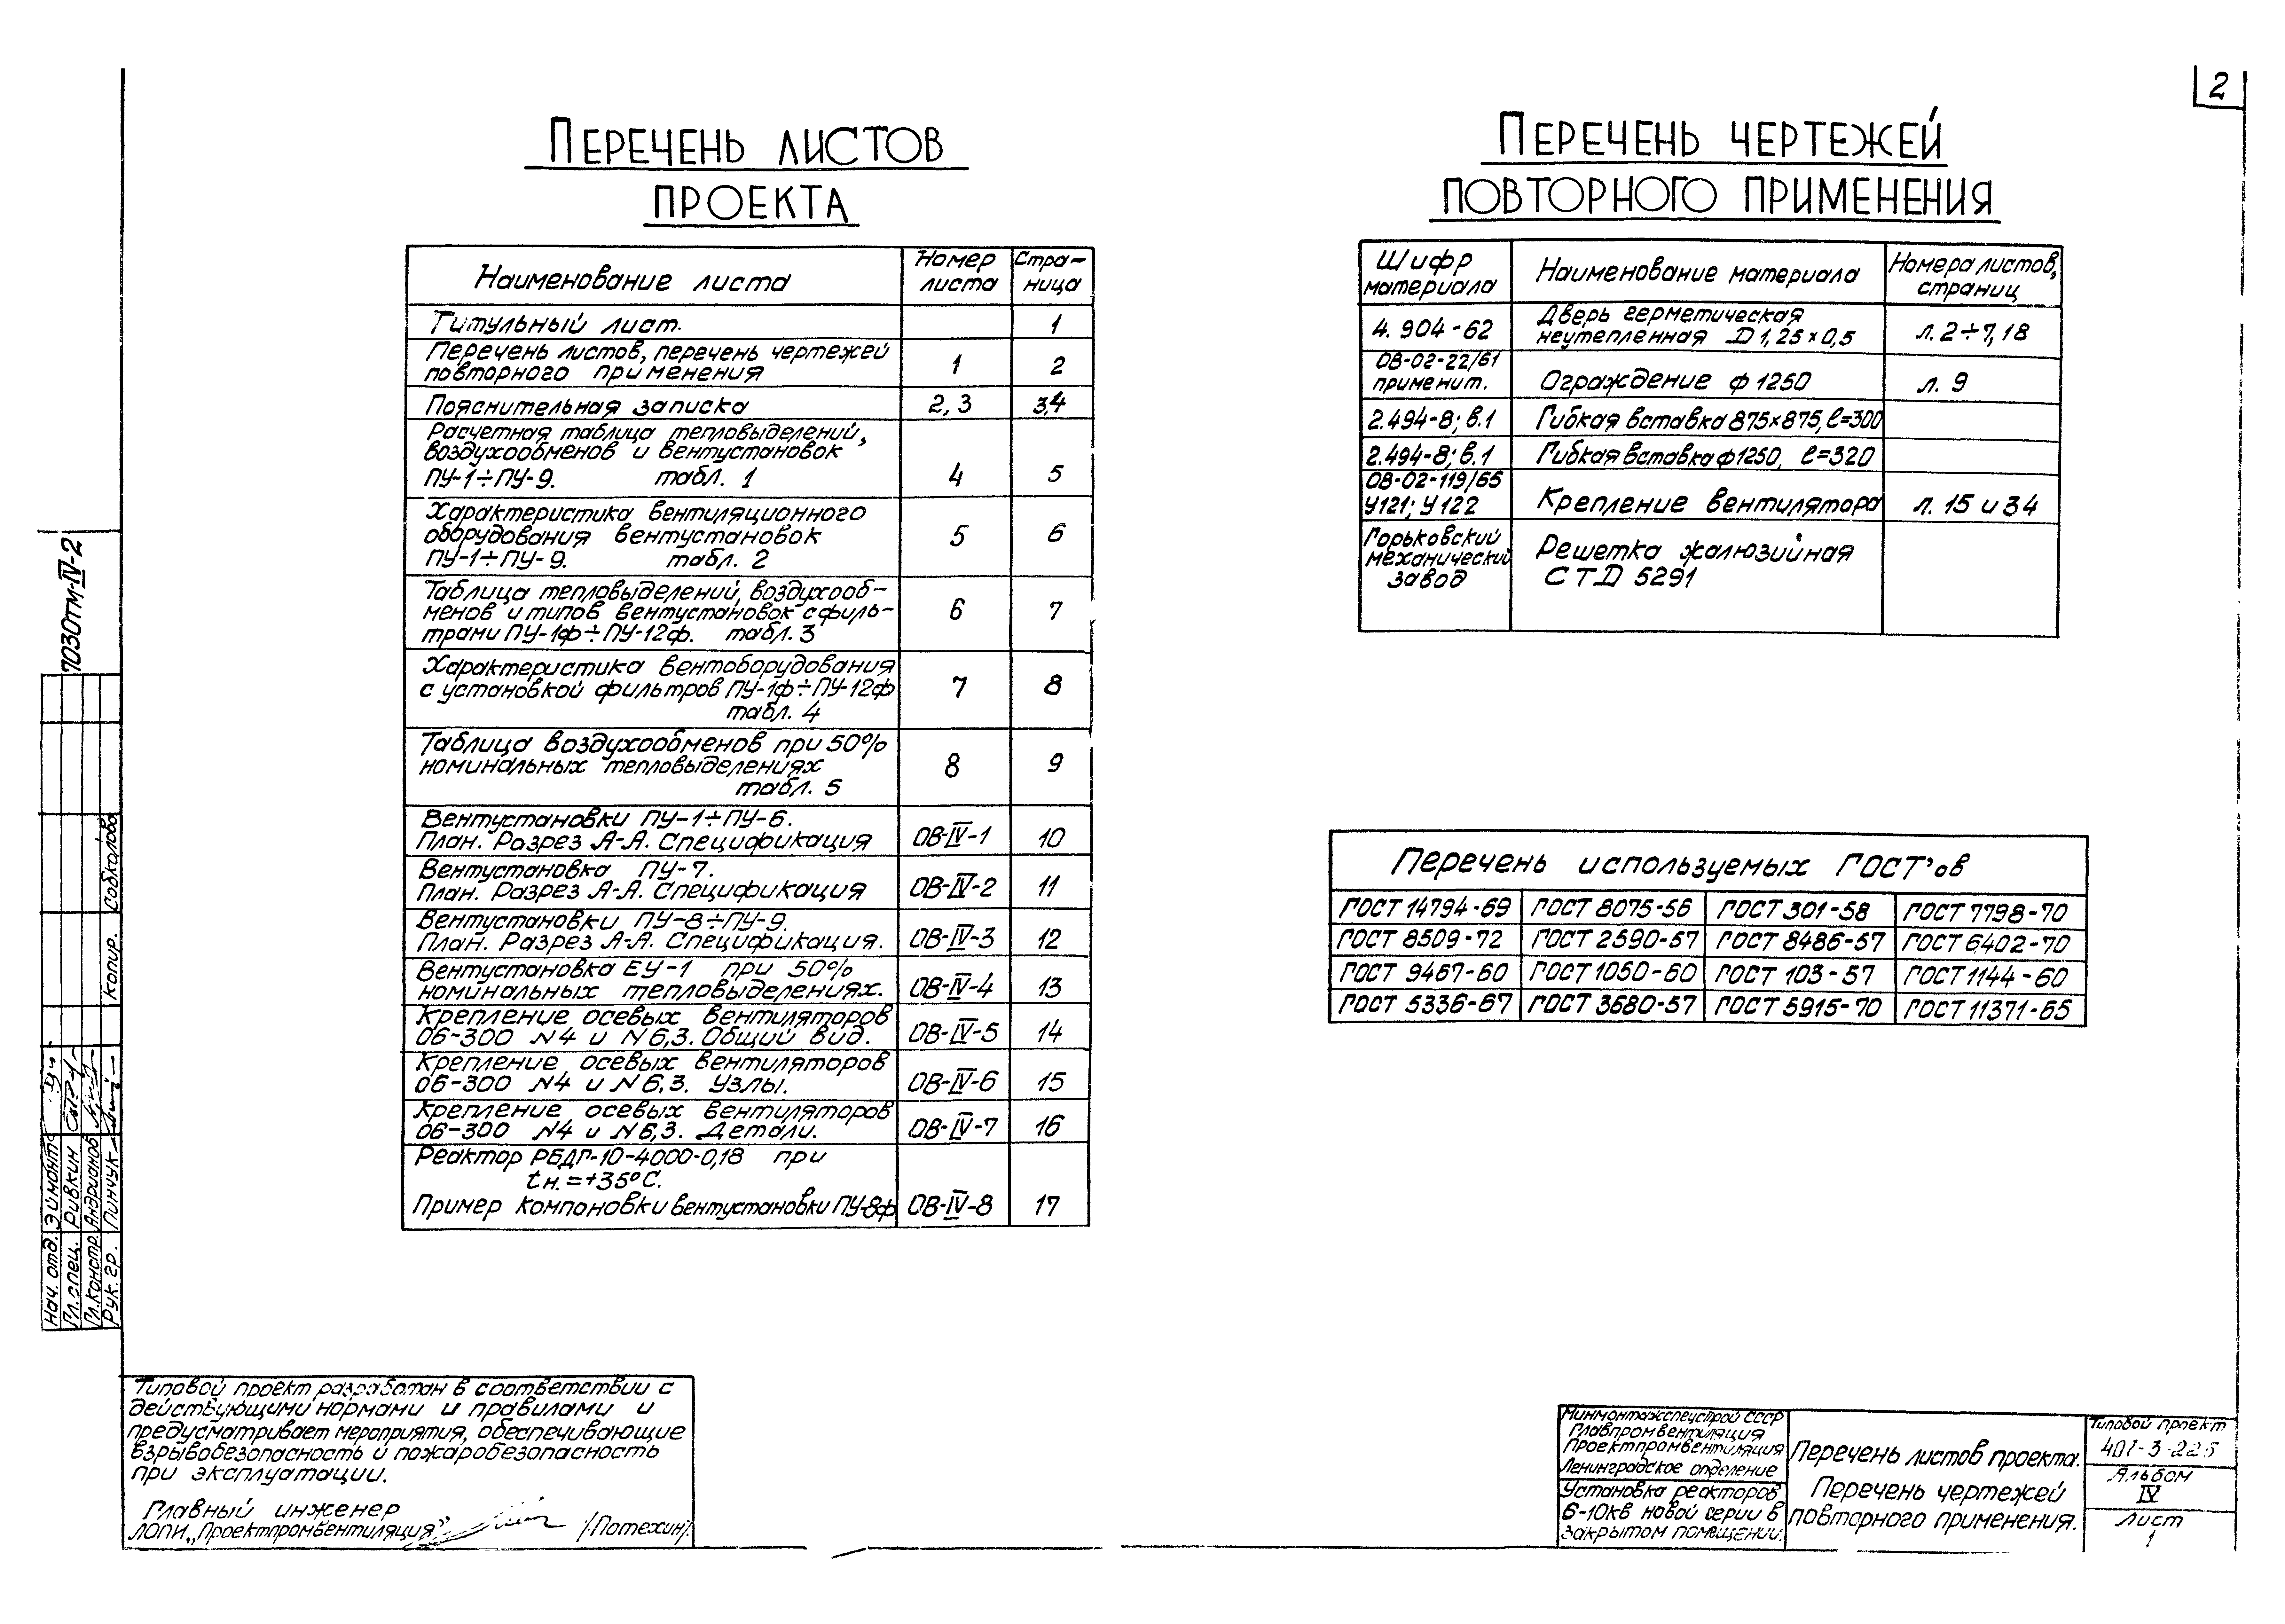 2
ПЕРЕЧЕНЬ ЛИСТОВ
ПРОЕКТА
Наименование листа | Номер листа | Стра-ница
Титульный лист. | | 1
Перечень листов, перечень чертежей
повторного применения | 1 | 2
Пояснительная записка | 2, 3 | 3,4
Расчетная таблица тепловыделений,
воздухообменов и вентустановок
ПУ-1÷ПУ-9. табл. 1 | 4 | 5
Характеристика вентиляционного
оборудования вентустановок
ПУ-1÷ПУ-9. табл. 2 | 5 | 6
Таблица тепловыделений, воздухооб-
менов и типов вентустановок с филь-
трами ПУ-1ф÷ПУ-12ф. табл. 3 | 6 | 7
Характеристика вентоборудования
с установкой фильтров ПУ-1ф÷ПУ-12ф
табл. 4 | 7 | 8
Таблица воздухообменов при 50%
номинальных тепловыделениях
табл. 5 | 8 | 9
Вентустановки ПУ-1÷ПУ-6.
План. Разрез А-А. Спецификация | ОВ-IV-1 | 10
Вентустановка ПУ-7.
План. Разрез А-А. Спецификация | ОВ-IV-2 | 11
Вентустановки ПУ-8÷ПУ-9.
План. Разрез А-А. Спецификация. | ОВ-IV-3 | 12
Вентустановка ЕУ-1 при 50%
номинальных тепловыделениях. | ОВ-IV-4 | 13
Крепление осевых вентиляторов
06-300 N4 и N6,3. Общий вид. | ОВ-IV-5 | 14
Крепление осевых вентиляторов
06-300 N4 и N6,3. Узлы. | ОВ-IV-6 | 15
Крепление осевых вентиляторов
06-300 N4 и N6,3. Детали. | ОВ-IV-7 | 16
Реактор РБДГ-10-4000-0,18 при
tн.=+35°С.
Пример компоновки вентустановки ПУ-8ф | ОВ-IV-8 | 17
ПЕРЕЧЕНЬ ЧЕРТЕЖЕЙ
ПОВТОРНОГО ПРИМЕНЕНИЯ
Шифр материала | Наименование материала | Номера листов, страниц
4.904-62 | Дверь герметическая
неутепленная D 1,25×0,5 | л. 2÷7, 18
ОВ-02-22/61
применит. | Ограждение ф 1250 | л. 9
2.494-8; в.1 | Гибкая вставка 875×875, ℓ=300
2.494-8; в.1 | Гибкая вставка ф1250, ℓ=320
ОВ-02-119/65
У121; У122 | Крепление вентилятора | л. 15 и 34
Горьковский
механический
завод | Решетка жалюзийная
СТD 5291
Перечень используемых ГОСТ'ов
ГОСТ 14794-69 | ГОСТ 8075-56 | ГОСТ 301-58 | ГОСТ 7798-70
ГОСТ 8509-72 | ГОСТ 2590-57 | ГОСТ 8486-57 | ГОСТ 6402-70
ГОСТ 9467-60 | ГОСТ 1050-60 | ГОСТ 103-57 | ГОСТ 1144-60
ГОСТ 5336-67 | ГОСТ 3680-57 | ГОСТ 5915-70 | ГОСТ 11371-65
7030тм-IV-2
копир. Собколова
Нач. отд. Эймонт
Гл. спец. Ривкин
Гл. констр. Андрианов
Рук. гр. Пинчук
Типовой проект разработан в соответствии с
действующими нормами и правилами и
предусматривает мероприятия, обеспечивающие
взрывобезопасность и пожаробезопасность
при эксплуатации.
Главный инженер
ЛОПИ „Проектпромвентиляция" /Потехин/.
Минмонтажспецстрой СССР
Главпромвентиляция
Проектпромвентиляция
Ленинградское отделение
Установка реакторов
6-10кв новой серии в
закрытом помещении.
Перечень листов проекта.
Перечень чертежей
повторного применения.
Типовой проект
407-3-225
Альбом
IV
Лист
1